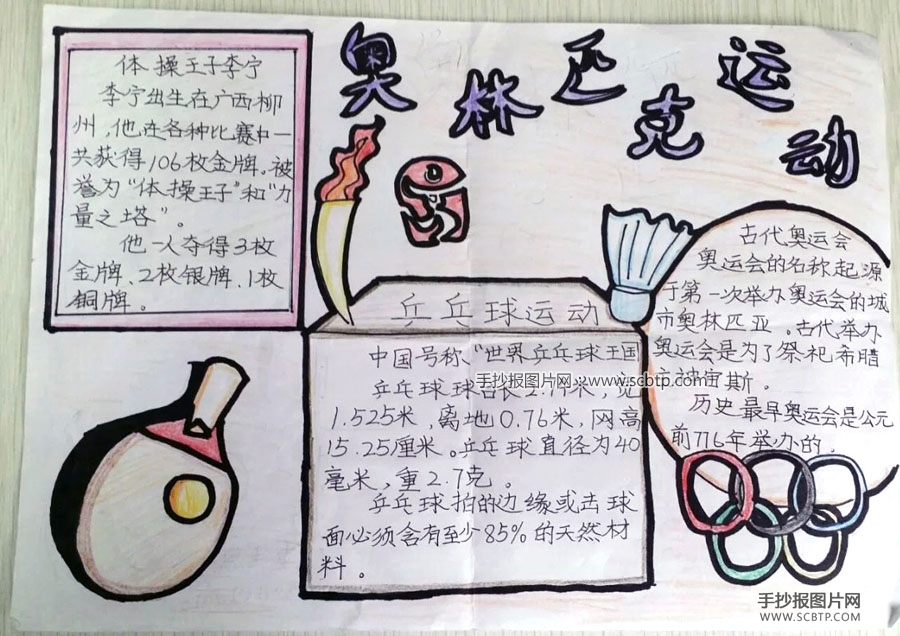 奥林匹克运动
体操王子李宁
李宁出生在广西柳
州，他在各种比赛中一
共获得106枚金牌。被
誉为“体操王子”和“力
量之塔”。
他一人夺得3枚
金牌、2枚银牌、1枚
铜牌。
乒乓球运动
中国号称“世界乒乓球王国
乒乓球球台长2.74米，宽
1.525米，离地0.76米，网高
15.25厘米。乒乓球直径为40
毫米，重2.7克。
乒乓球拍的边缘或击球
面必须含有至少85%的天然材
料。
古代奥运会
奥运会的名称起源
于第一次举办奥运会的城
市奥林匹亚。古代举办
奥运会是为了祭祀希腊
宙斯。
历史最早奥运会是公元
前776年举办的。
手抄报图片网：www.scbtp.com
手抄报图片网
WWW.SCBTP.COM